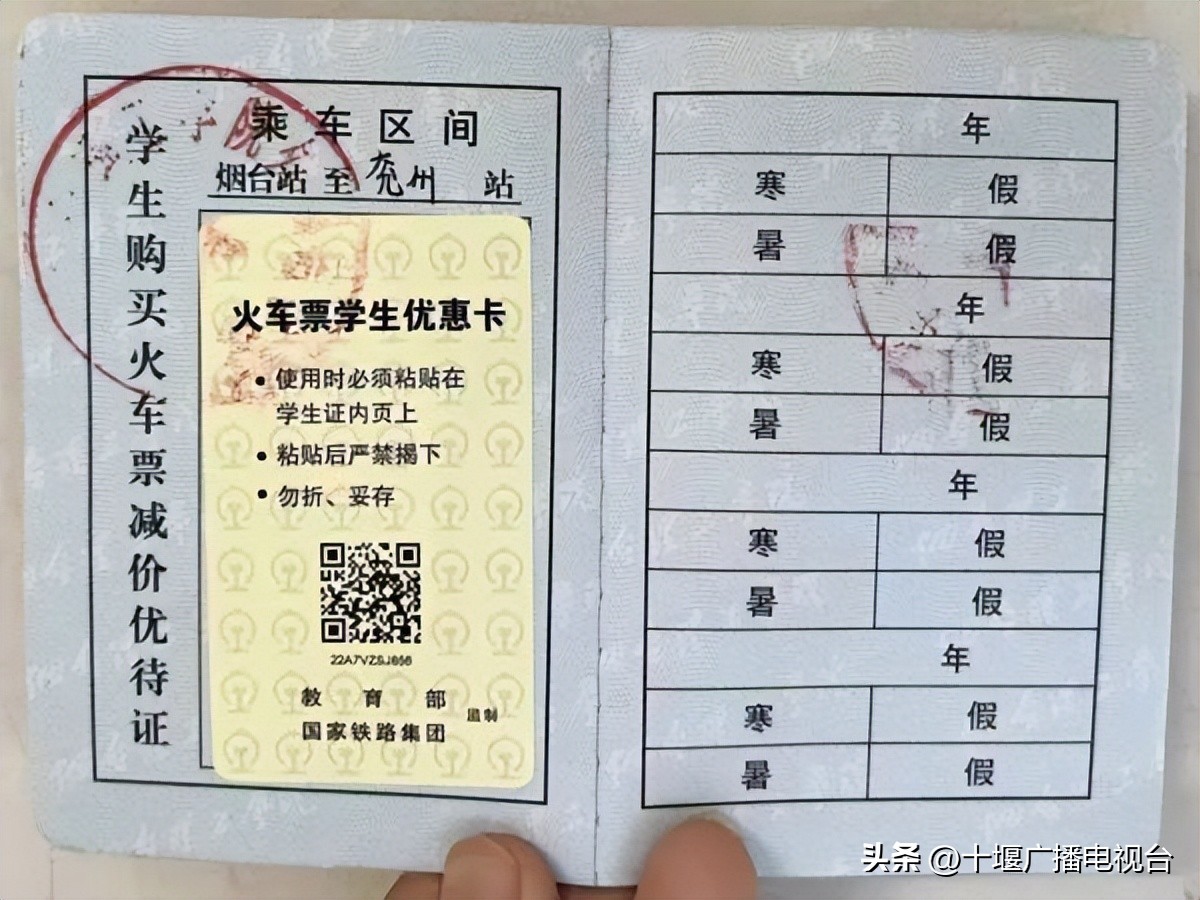 学生购买火车票减价优待证
乘车区间
烟台站 至 兖州 站
火车票学生优惠卡
• 使用时必须粘贴在
学生证内页上
• 粘贴后严禁揭下
• 勿折、妥存
教育部
国家铁路集团
监制
年
寒 假
暑 假
年
寒 假
暑 假
年
寒 假
暑 假
年
寒 假
暑 假
头条 @十堰广播电视台